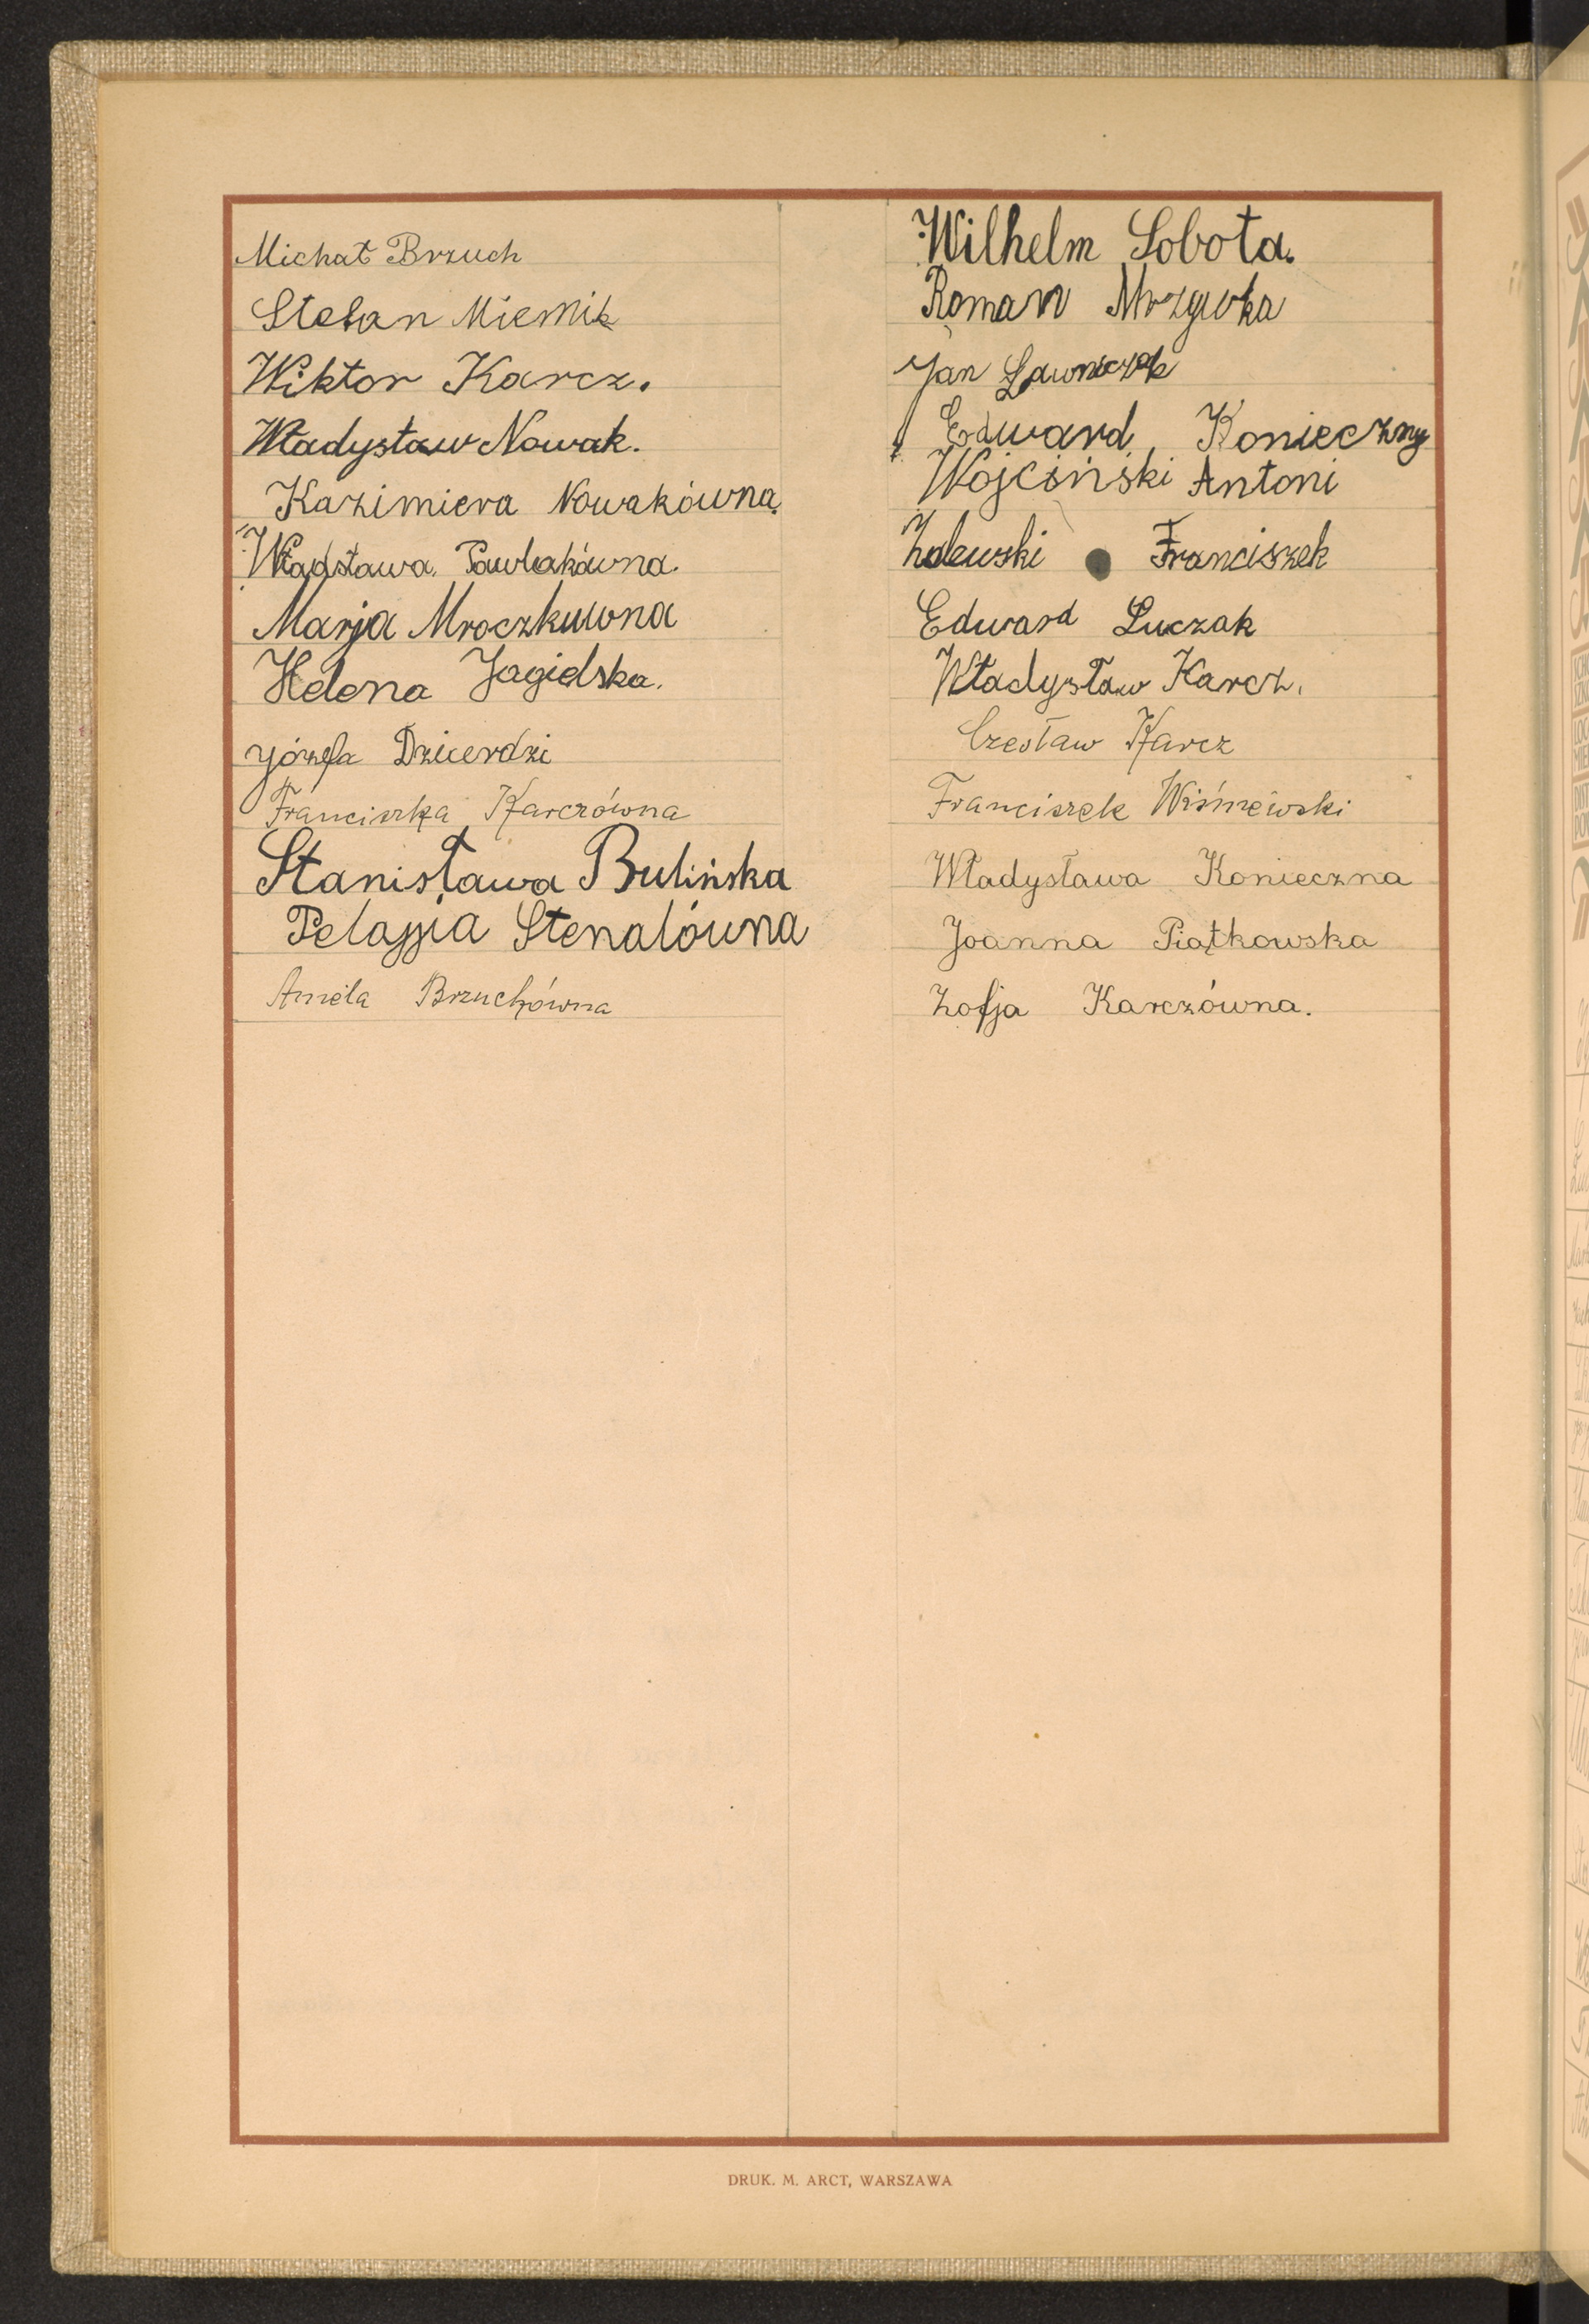 Michał Brzuch
Stefan Miernik
Wiktor Karcz.
Władysław Nowak.
Kazimiera Nowakówna.
Władsława Pawlakówna.
Marja Mroczkuwna
Helena Jagielska.
Józefa Dzicerdzi
Franciszka Karczówna
Stanisława Bulińska
Pelagja Stenalówna
Aniela Brzuchówna
Wilhelm Sobota.
Roman Mrzywka
Jan Ławniczek
Edward Konieczny
Wojciński Antoni
Zalewski Franciszek
Edward Łuczak
Władysław Karcz.
Czesław Karcz
Franciszek Wiśniewski
Władysława Konieczna
Joanna Piątkowska
Zofja Karczówna.
DRUK. M. ARCT, WARSZAWA